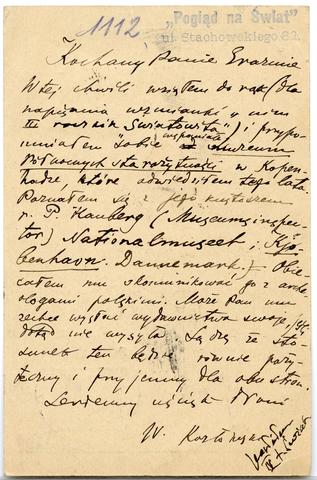 1112
„Pogląd na Świat"
ul. Stachowskiego 82.
Kochany Panie Erazmie
W tej chwili wziąłem do rąk (dla
napisania wzmianki o nim
III rocznik Światowita) i przypo-
mniałem sobie wspaniałe muzeum
Północnych starożytności w Kopen-
hadze, które odwiedziłem tego lata.
Poznałem się z jego kustoszem
p. P. Hauberg (Museumsinspec-
tor) Nationalmuseet i Kjö-
benhavn. Dannemark.) Obie-
całem mu skomunikować go z arche-
ologami polskimi. Może Pan mu
zechce wysłać wydawnictwa swoje, jeśli
dotąd nie wysyła. Sądzę że sto-
sunek ten będzie równie poży-
teczny i przyjemny dla obu stron.
Serdeczny uścisk dłoni
W.